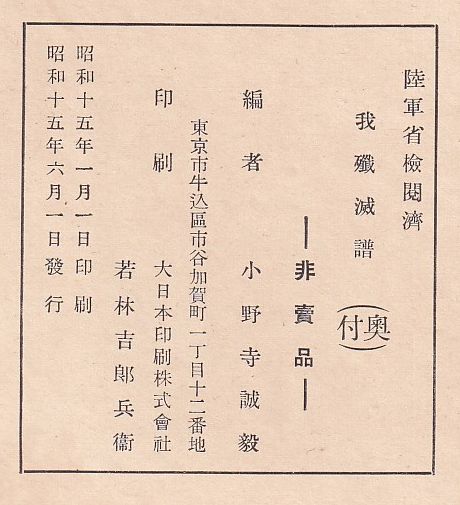 陸軍省檢閱濟
我殲滅譜
(奥付)
―非賣品―
編者 小野寺誠毅
東京市牛込區市谷加賀町一丁目十二番地
印刷 大日本印刷株式會社
若林吉郎兵衞
昭和十五年一月一日印刷
昭和十五年六月一日發行